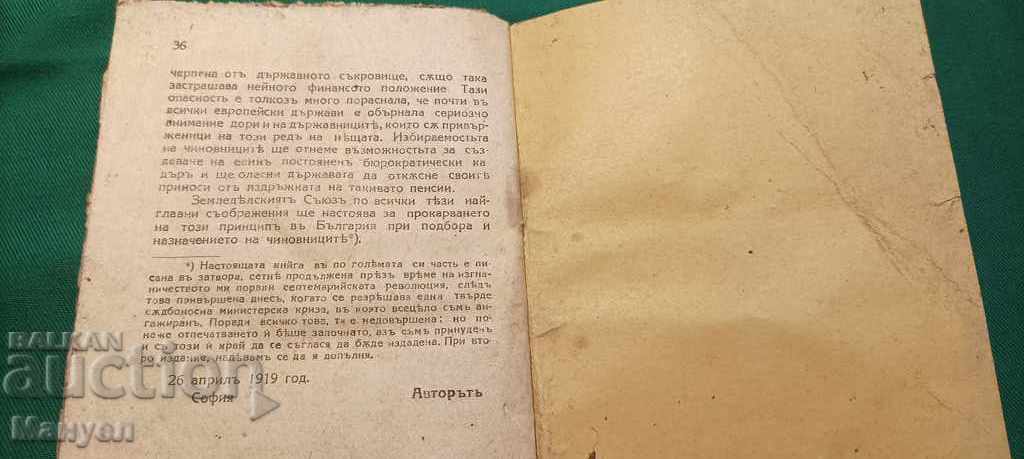 36
черпена отъ държавното съкровище, сѫщо така
застрашава нейното финансово положение Тази
опасность е толкозъ много пораснала, че почти въ
всички европейски държави е обърнала сериозно
внимание дори и на държавницитѣ, които сѫ привър-
женици на този редъ на нѣщата. Избираемостьта
на чиновницитѣ ще отнеме възможностьта за съз-
даваче на единъ постояненъ бюрократически ка-
дъръ и ще опасни държавата да откѫсне своитѣ
приноси отъ издръжката на такивато пенсии.
Земледѣлскиятъ Съюзъ по всички тѣзи най-
главни съображения ще настоява за прокарването
на този принципъ въ България при подбора и
назначението на чиновницитѣ*).
*) Настоящата книга въ по голѣмата си часть е пи-
сана въ затвора, сетнѣ продължена прѣзъ време на изгна-
ничеството ми поради септемврийската революция, слѣдъ
това привършена днесъ, когато се разрѣшава една твърде
сѫдбоносна министерска криза, въ която всецѣло съмъ ан-
гажиранъ. Поради всичко това, тя е недовършена: но по-
неже отпечатването ѝ бѣше започнато, азъ съмъ принуденъ
и съ този ѝ край да се съглася да бѫде издадена. При вто-
ро издание, надѣвамъ се да я допълня.
26 априлъ 1919 год.
София Авторътъ
BALKAN
auction
Manyen